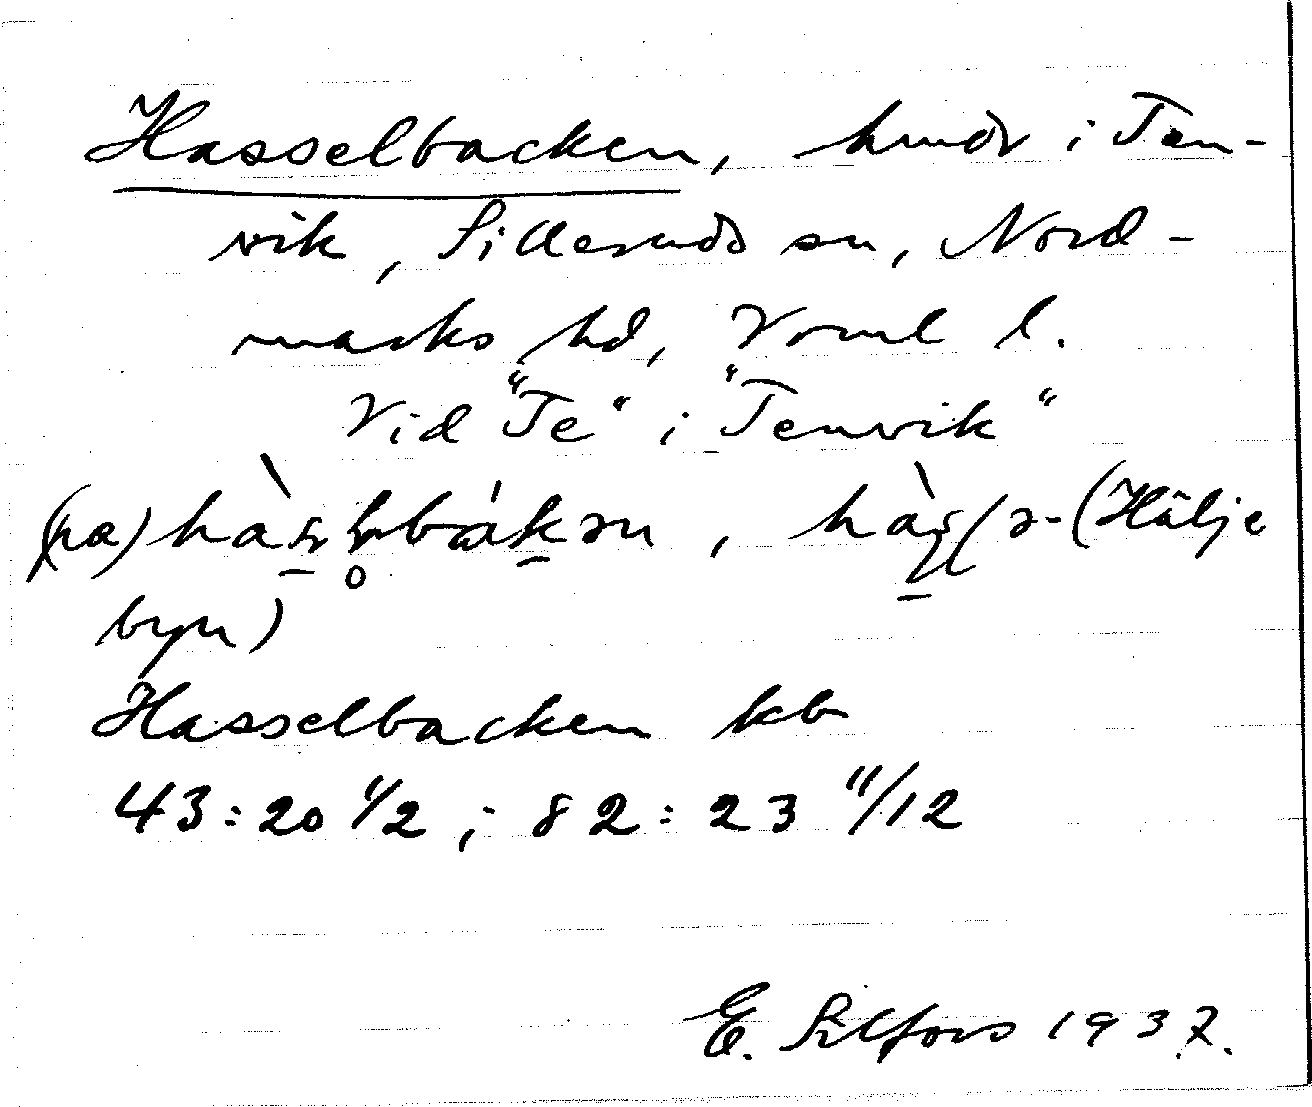 Hasselbacken, hmdr i Ten-
vik, Silleruds sn, Nord-
marks hd, Vrml l.
Vid "Te" i "Tenvik"
(pa) (Hälje
byn)
Hasselbacken kb
43:20 1/2 ; 82:23 11/12
E. Silfors 1937.